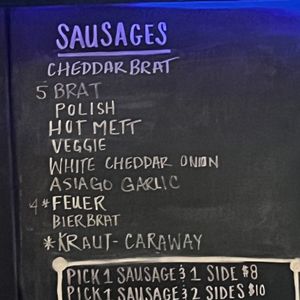 SAUSAGES
CHEDDAR BRAT
5 BRAT
POLISH
HOT METT
VEGGIE
WHITE CHEDDAR ONION
ASIAGO GARLIC
4*FEUER
BIERBRAT
*KRAUT-CARAWAY
PICK 1 SAUSAGE & 1 SIDE $8
PICK 1 SAUSAGE & 2 SIDES $10